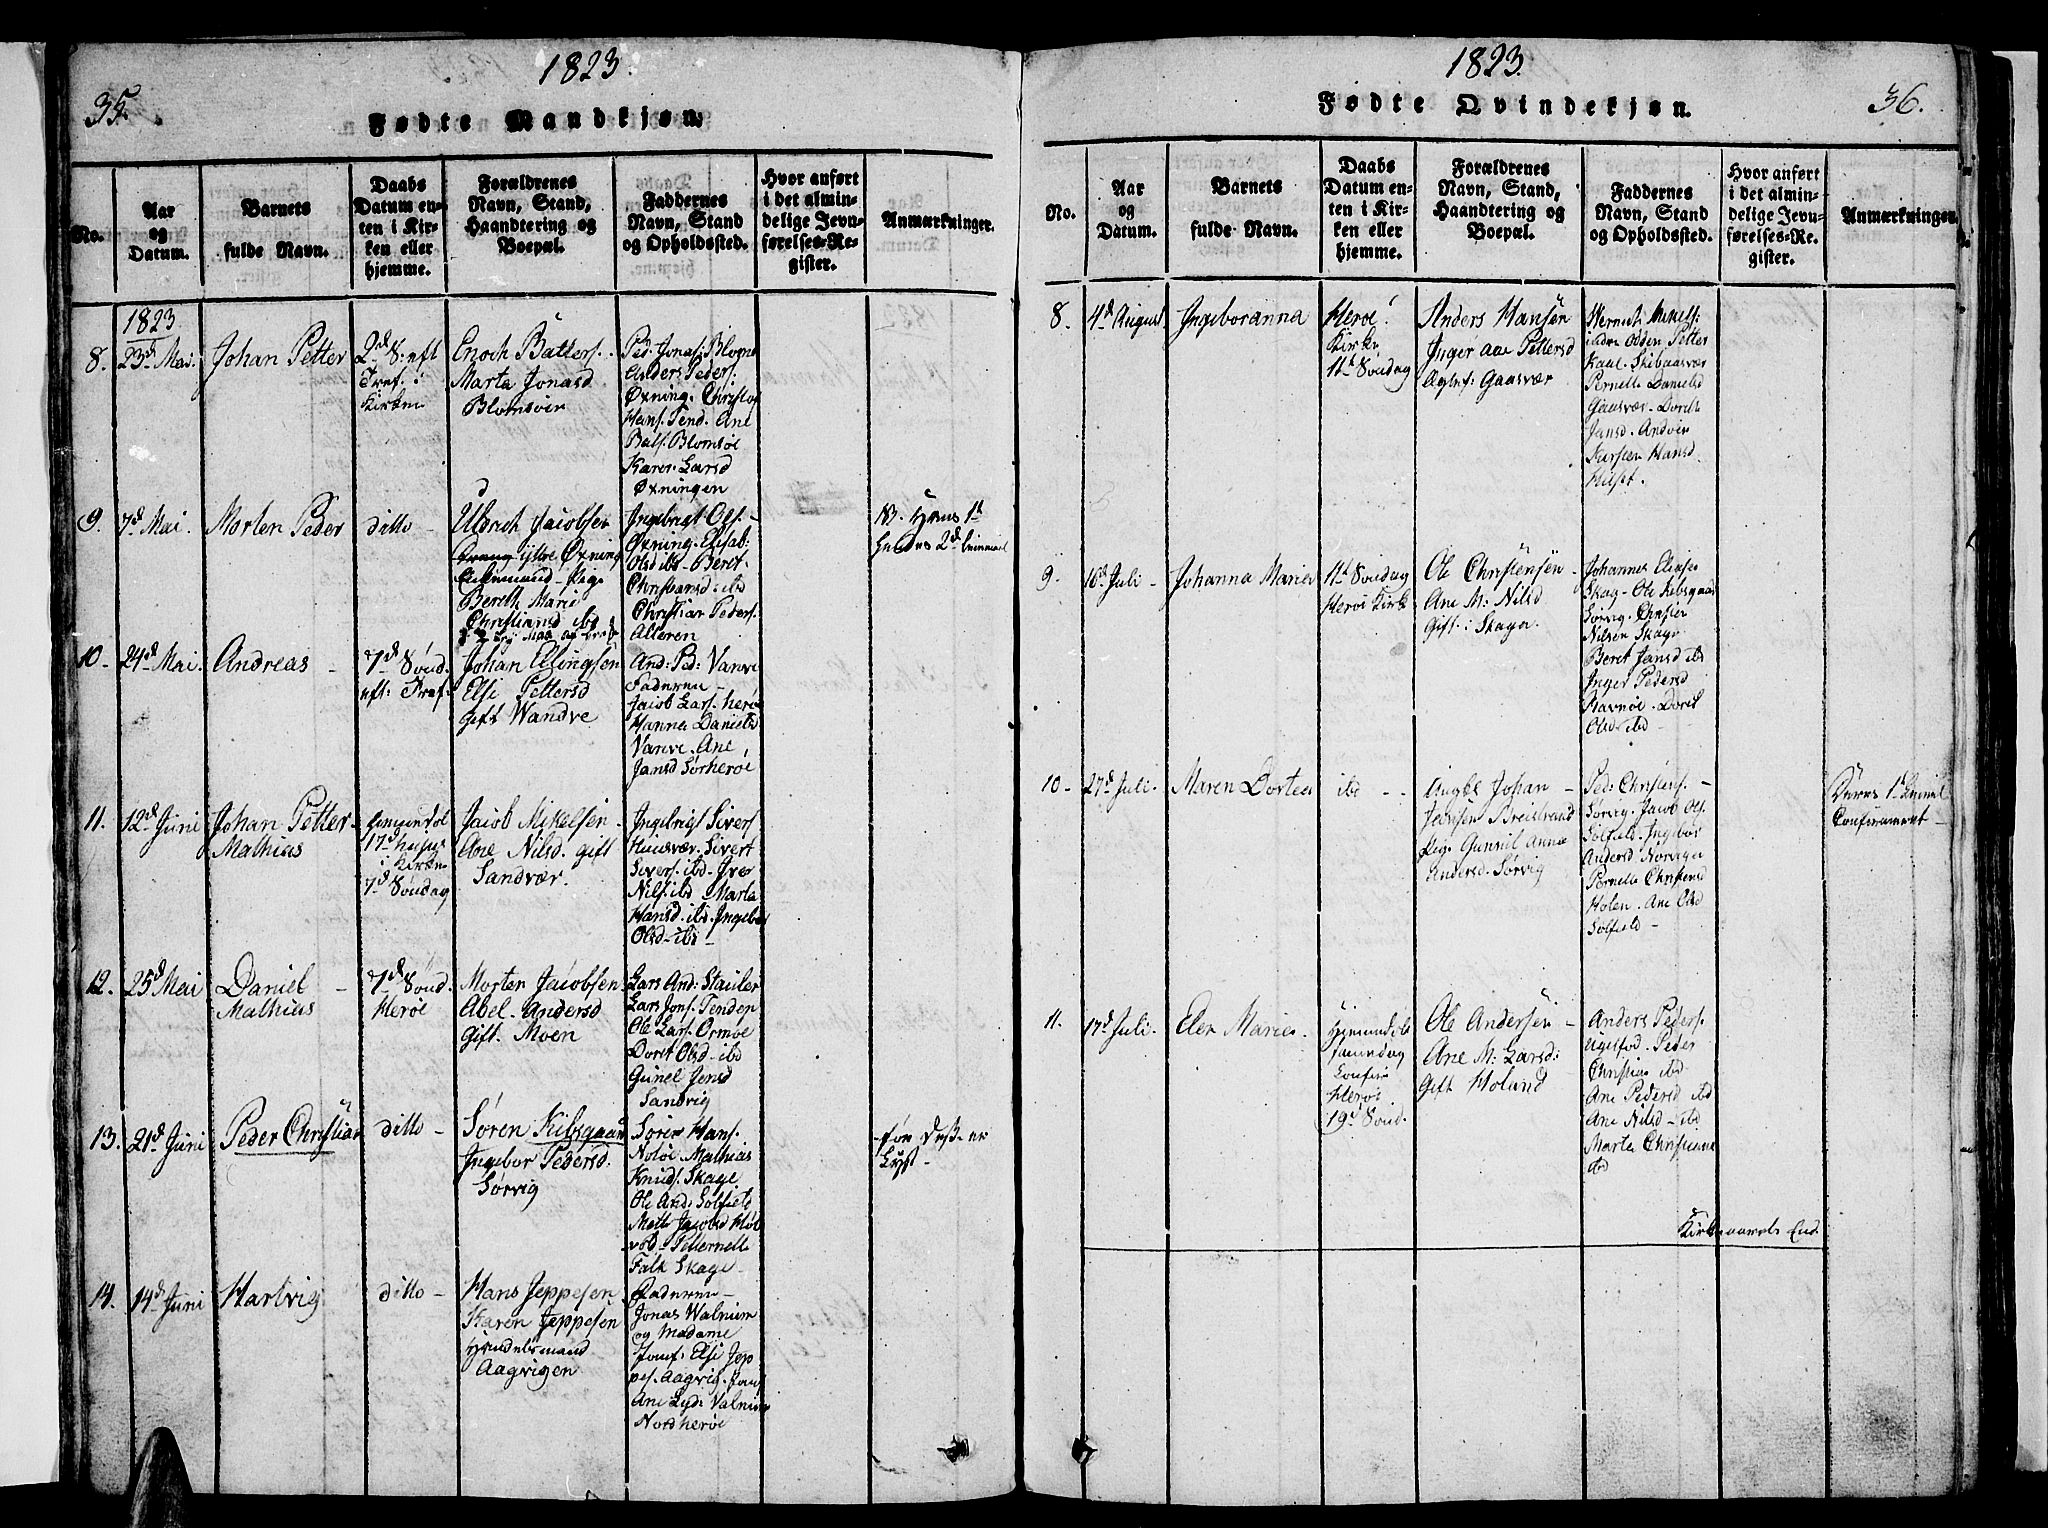 1823.
35.
Fødte Mandkjøn.
No.
Aar
og
Datum.
Barnets
fulde Navn.
Daabs
Datum en-
ten i Kir-
ken eller
hjemme.
Forældrenes
Navn, Stand,
Haandtering og
Boepæl.
Faddernes
Navn, Stand
og Opholdssted.
Hvor anført
i det almin-
delige Jevn-
førelses-Re-
gister.
Anmærkninger.
1823
8.
23d Mai.
Johan Petter
2d S: eft
Tref. i
Kirken
Enoch Batters.
Marta Jonasd
Blomsöir
Ped. Jonas. Blogn
Anders Peders.
Øxning. Christop
Hans. Tend. Ane
Balts. Blomsöe
Karen Larsd
Øxningen
9.
7d Mai
Morten Peder
ditto -
Uldrich Jacobsen
ytre Øxning
Enkemand - Pige
Bereth Marie
Christiansd ibd
Ingebrigt Ols. -
Øxning. Elisab.
Olsd ibd - Beret
Christiansd - ibd
Christian Peders.
Alteren
NB. Hans 1st
hendes 2d
10.
24d Mai.
Andreas -
7d Sönd.
eft: Tref.
Johan Ellingsen
Elsi Pettersd
gift Wandve
And: Ped: Vanve
Faderen -
Jacob Lars. Herö
Hanna Danielsd
Vanve. Ane
Jansd Sörheröe
11.
12d Juni
Johan Petter
Mathias
i Kirken
7d Söndag
Jacob Mikelsen
Ane Nilsd. gift
Sandvær.
Ingebrigt Sivers.
Husvær. Sivert
Sivers. ibd. Iver
Nils. ibd Marta
Hansd. ibd. Ingebor
Olsd - ibd -
12.
25d Mai
Daniel -
Mathias
7d Sönd.
Heröe
Morten Jacobsen
Abel. Andersd
gift. Moen
Lars And: Stauler
Lars Jons. Tenden
Ole Lars. Ormöe
Doret Olsd - ibd
Gunel Jensd
Sandvig
13.
21d Juni
Peder Christian
ditto -
Sören Kilsgaar
Ingebor Pedersd.
Sörvig
Sören Hans.
Nolöe. Mathias
Knuds. Skage
Ole And: Solfield
Mette Jacobsd
Petternelle
Falk Skage -
14.
14d Juni
Hartvig
ditto -
Hans Jeppesen
Karen Jeppesen
Handelsmand
Aagvigen
Faderen -
Jonas Walnum
og Madame
Jomf. Elsi Jep
pes. Aagvig. Jomf
Ane Lyd: Valnum
Nordheröe
1823.
36.
Fødte Qvindekjøn.
No.
Aar
og
Datum.
Barnets
fulde Navn.
Daabs
Datum en-
ten i Kir-
ken eller
hjemme.
Forældrenes
Navn, Stand,
Haandtering og
Boepæl.
Faddernes
Navn, Stand
og Opholdssted.
Hvor anført
i det almin-
delige Jevn-
førelses-Re-
gister.
Anmærkninger.
8.
4d August
Ingeboranna
Heröe
Kirke
11t Söndag
Anders Hansen
Inger Ane Pettersd
Gaasvær
Mikels:
Olden Petter
Kaal. Skibaasvær
Pernelle Danielsd
Gaasvær. Doreth
Jansd. Andöir
Kirsten Hansd
Huset.
9.
16d Juli -
Johanna Maria
11t Söndag
Heröi Kirke
Ole Christensen -
Ane M: Nilsd
Gift. i Skagen
Johannes Elias.
Skag. Ole Kilsgaar
Sörvig. Christen
Nilsen Skage
Beret Jansd ibd
Inger Pedersd
Ravnöe. Doret
Olsd - ibd
10.
27d Juli.
Maren Dortea
ibd -
Johan -
Jensen Breistrand
Pig: Gunnil Anna
Andersd. Sörvig
Ped: Christens. -
Sörvig. Jacob Ols.
Solfield. Ingebor
Andersd Norvigen
Pernelle Christensd
Holen. Ane Olsd
Solfield -
Confirmeret -
11.
17d Juli.
Elen Maria
Heröe
19d Sönd.
Ole Andersen -
Ane M: Larsd:
Gift Holand
Anders Peders.
Peder
Christian ibd
Ane Pedersd ibd
Ane Nilsd - ibd
Marta Christiane
ibd
Kirkeaarets End.